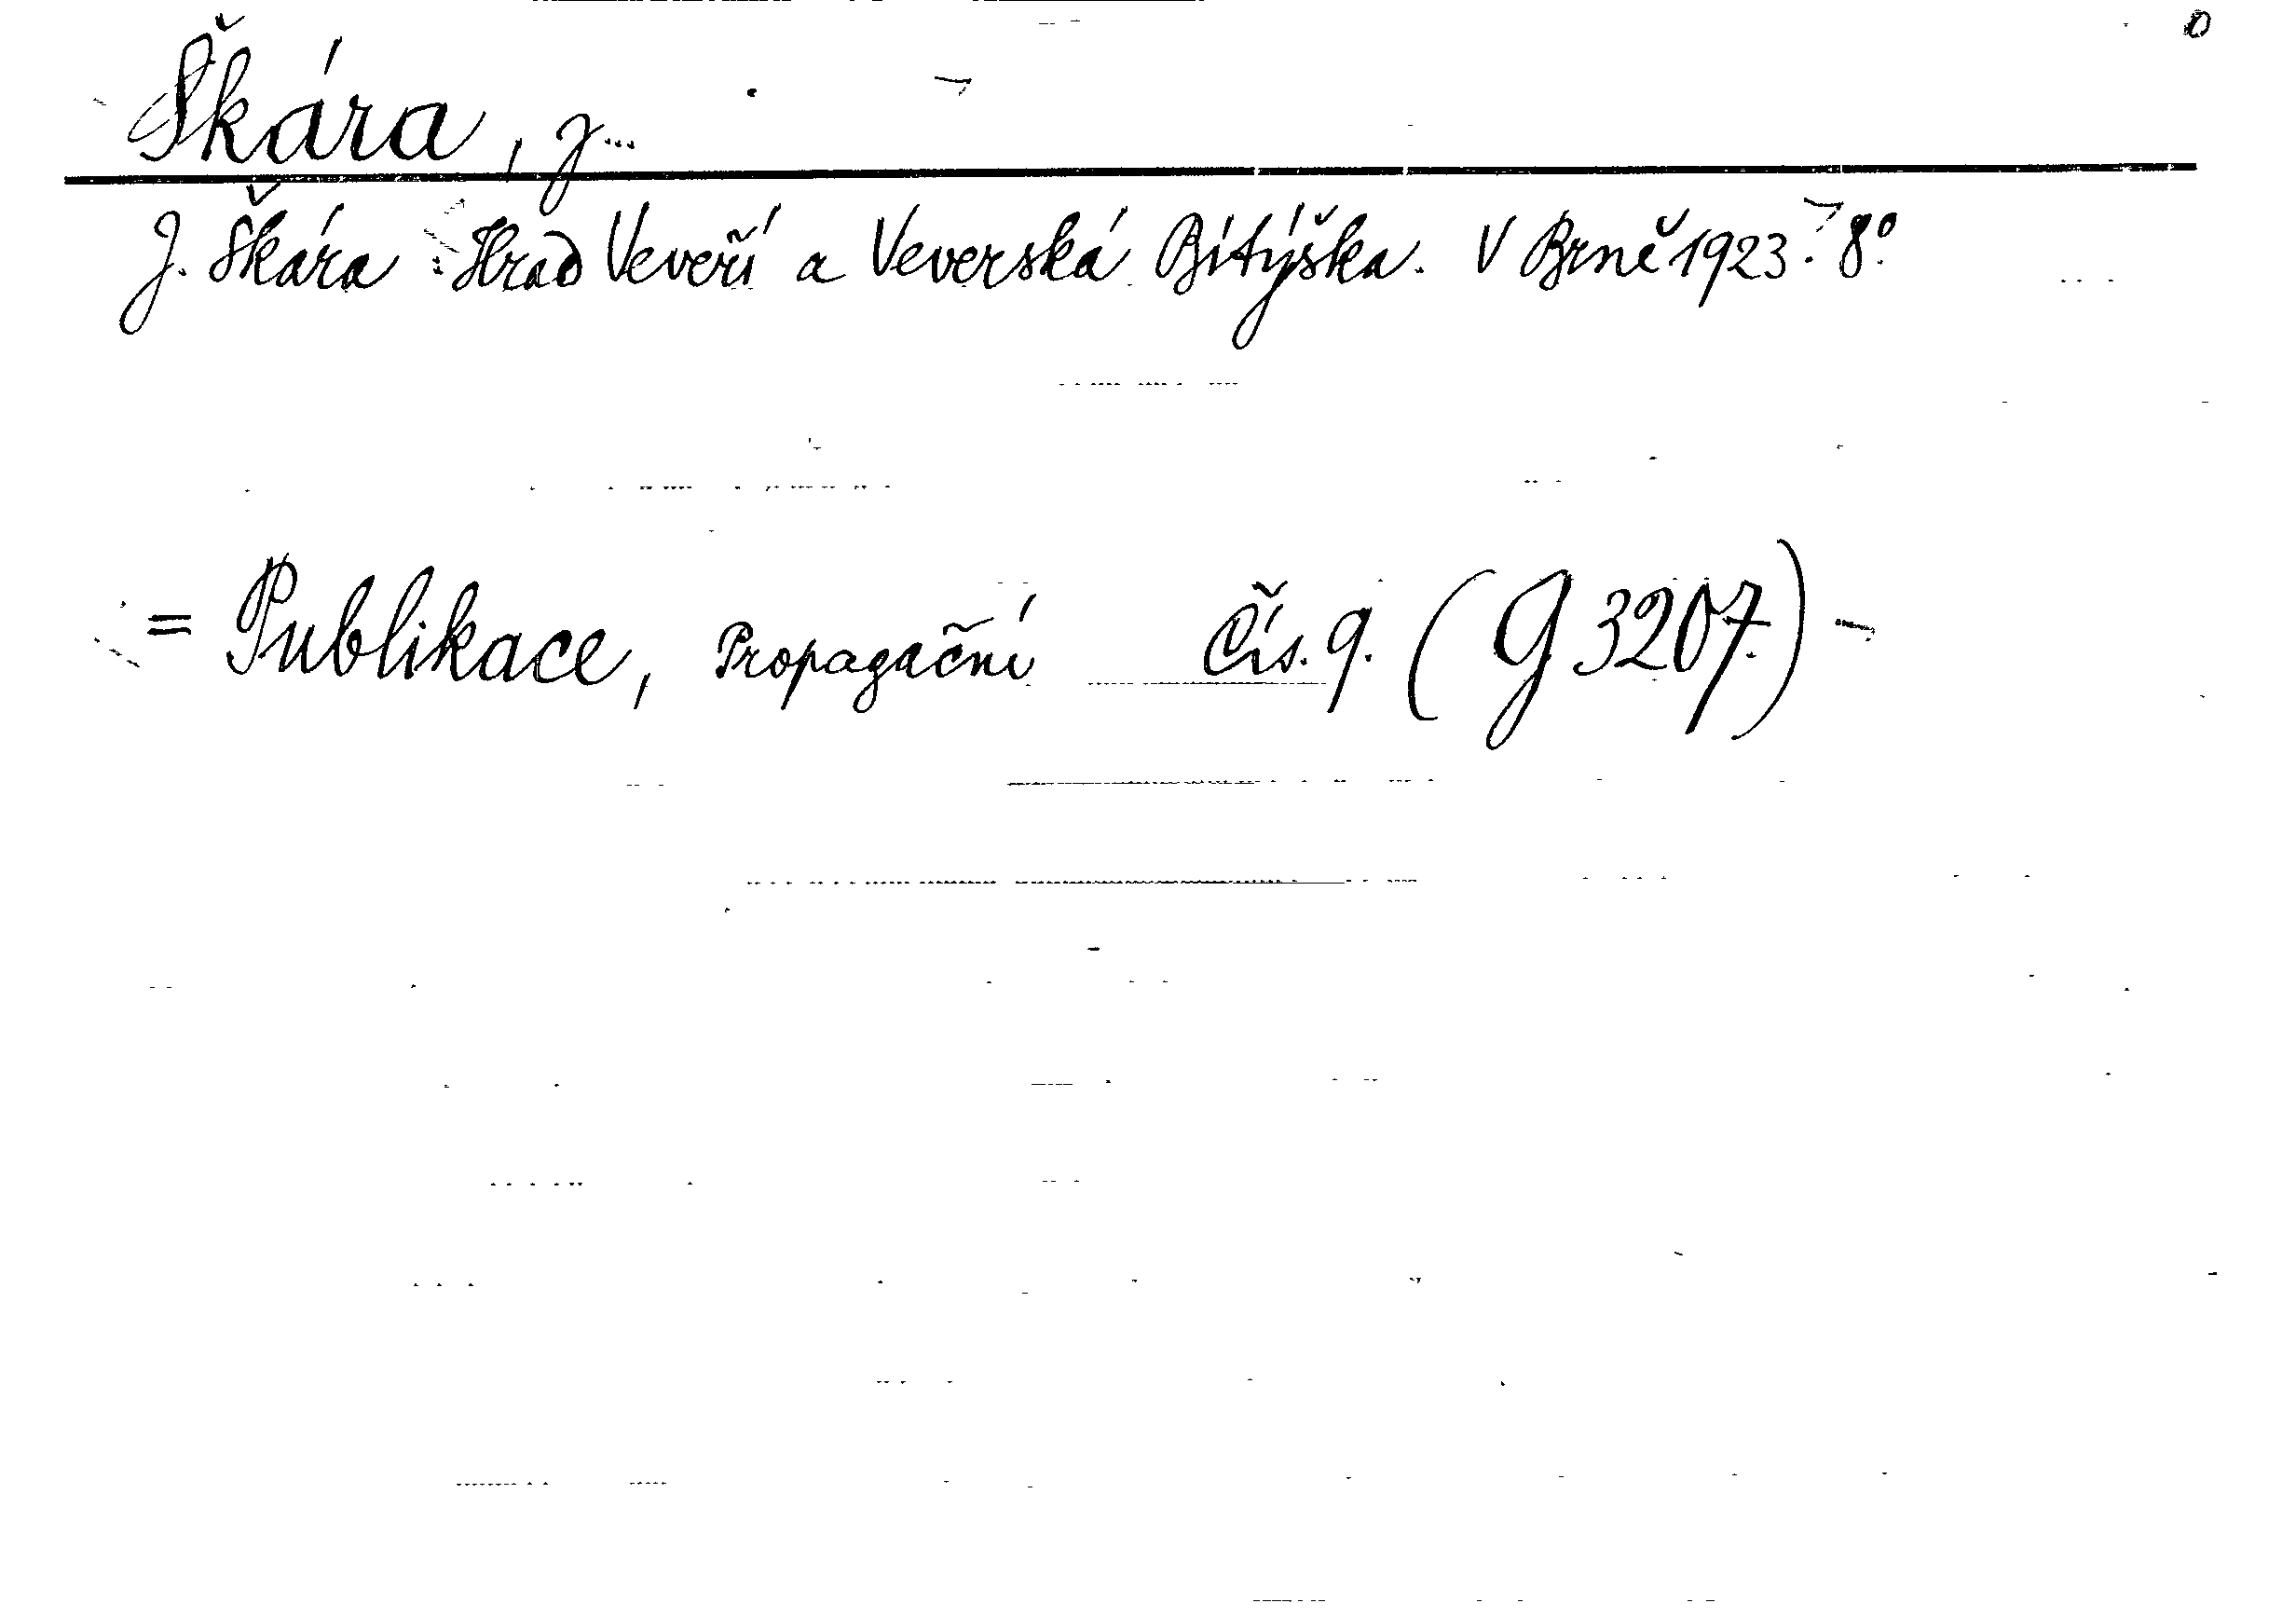 Škára, J...
J. Škára : Hrad Veveří a Veverská Bítýška. V Brně 1923. 8º.
= Publikace, Propagační Čís. 9. (G 3207.)